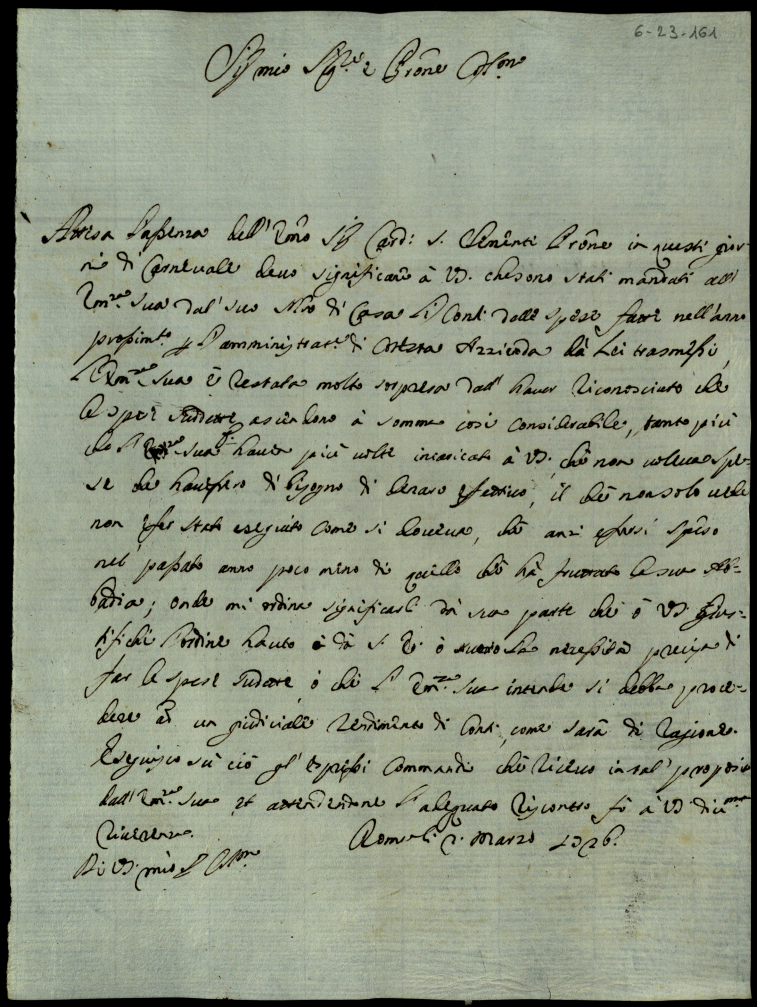 6-23-161
Sig mio Sig.re e Prone Col.mo
Attesa l'assenza dell' Emo Sig Card: S. Clementi Prone in questi gior-
ni di Carnevale devo significare à VS. che sono stati mandati all'
Em.za Sua dal' suo Mro di Casa li Conti delle spese fatte nell'anno
prossim.o p l'amministrat.e di cotesta Azzienda da Lei trasmessi,
L'Em.za Sua è restata molto sorpresa dall' haver riconosciuto che
le spese sudette ascendono à somma così considerabile, tanto più
che l' Em.za Sua haver più volte incaricato à VS. che non voleva spe-
se che havessero di bisogno di denaro effettivo, il che non solo vede
non esser stato eseguito come si doveva, che anzi essersi speso
nel' passato anno poco meno di quello che hà fruttato la sua Ab-
badia; onde mi ordina significarli da sua parte che ò VS. gius-
tifichi l'ordine hauto da S. E. ò la necessità precisa di
far le spese sudette, ò che l' Em.za Sua intende si debba proce-
dere ad un giudiciale rendimento di Conti, come sarà di ragione.
Eseguisco sù ciò gl' espressi Commandi che ricevo in tal' proposito
dall' Em.za Sua et attendendone l'adeguato riscontro fò à VS. div.ma
riverenza. Roma li 2. Marzo 1726.
Di VS. mio Sig Col.mo